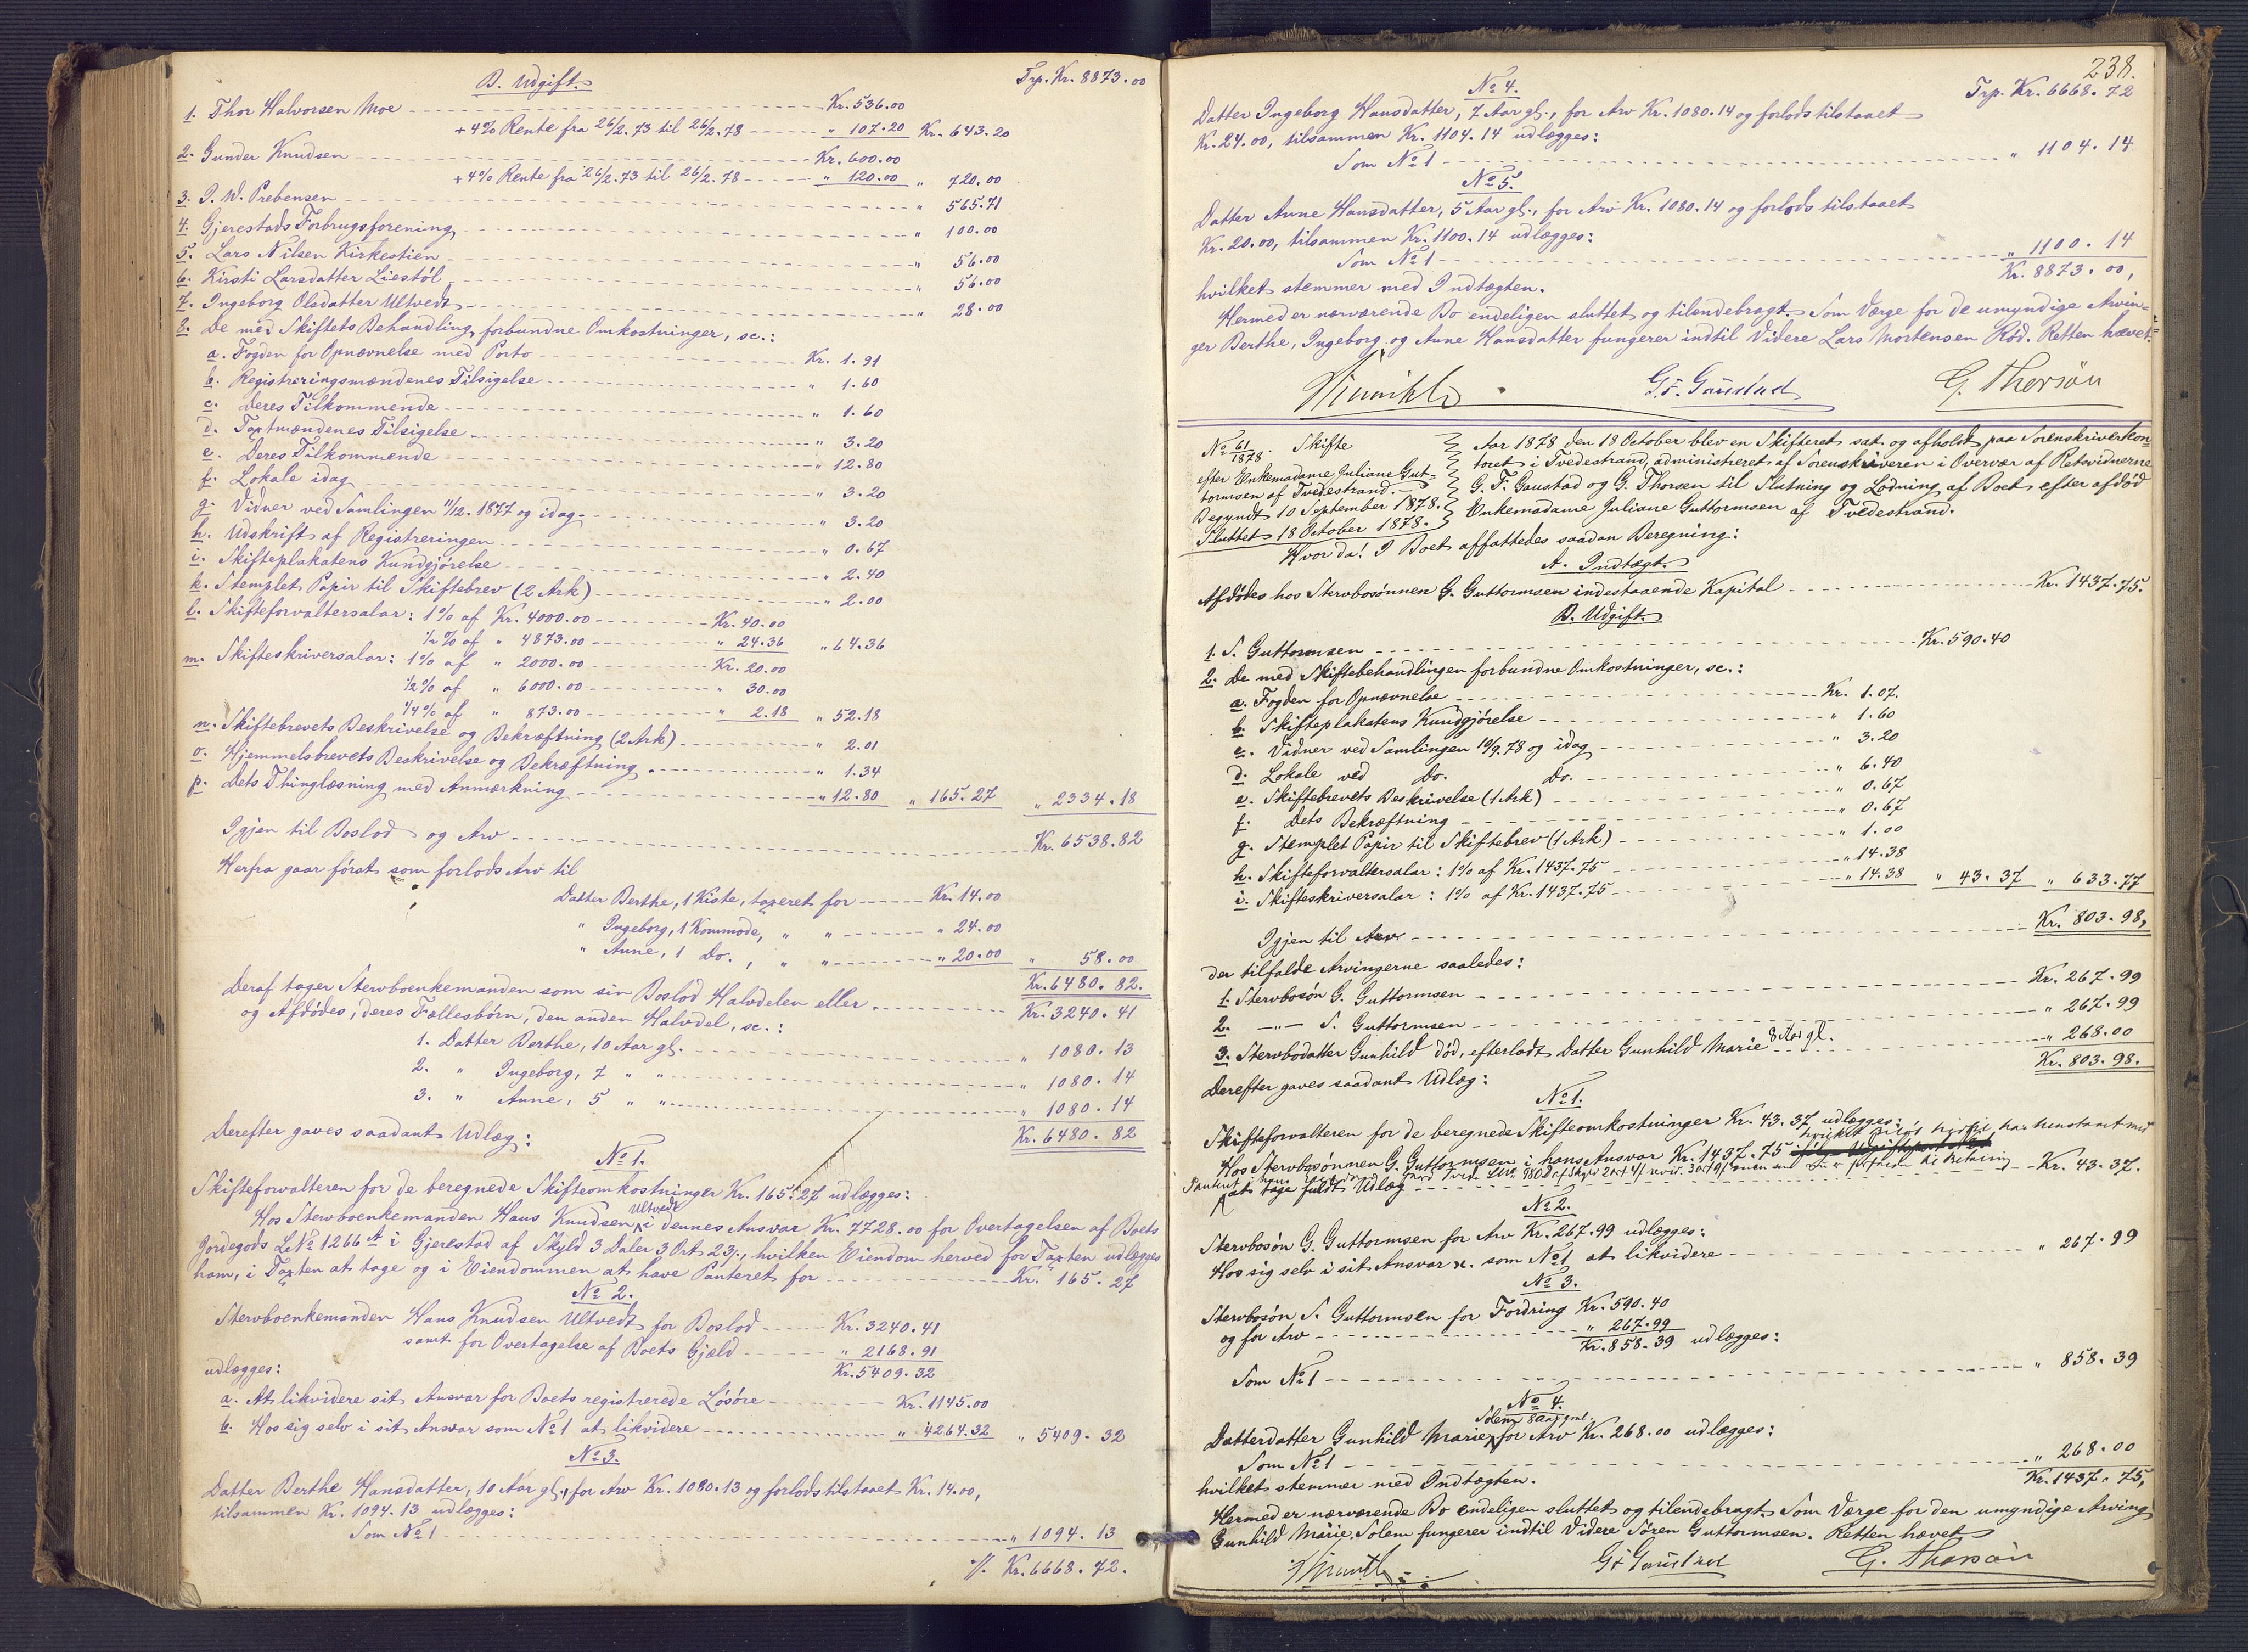 B. Udgift. Trp. Kr. 8873.00
1. Thor Halvorsen Moe Kr. 536.00
+ 4% Rente fra 26/2.73 til 26/2.78 " 107.20 Kr. 643.20
2. Gunder Knudsen Kr. 600.00
+ 4% Rente fra 26/2.73 til 26/2.78 " 120.00 " 720.00
3. P. W. Prebensen " 565.71
4. Gjerestads Forbrugsforening " 100.00
5. Lars Nilsen Kirkestien " 56.00
6. Kirsti Larsdatter Liestöl " 56.00
7. Ingeborg Olsdatter Ultvedt " 28.00
8. De med Skiftets Behandling forbundne Omkostninger, sc.:
a. Fogden for Opnævnelse med Porto Kr. 1.91
b. Registreringsmændenes Tilsigelse " 1.60
c. Deres Tilkommende " 1.60
d. Taxtmændenes Tilsigelse " 3.20
e. Deres Tilkommende " 12.80
f. Lokale idag " 3.20
g. Vidner ved Samlingen 11/12.1877 og idag " 3.20
h. Udskrift af Registreringen " 0.67
i. Skifteplakatens Kundgjörelse " 2.40
k. Stemplet Papir til Skiftebrev (2 Ark) " 2.00
l. Skifteforvaltersalar: 1% af Kr. 4000.00 Kr. 40.00
1/2% af " 4873.00 " 24.36 " 64.36
m. Skifteskriversalar: 1% af " 2000.00 Kr. 20.00
1/2% af " 6000.00 " 30.00
1/4% af " 873.00 " 2.18 " 52.18
n. Skiftebrevets Beskrivelse og Bekræftning (2 Ark) " 2.01
o. Hjemmelsbrevets Beskrivelse og Bekræftning " 1.34
p. Dets Thinglæsning med Anmærkning " 12.80 " 165.27 " 2334.18
Igjen til Boslod og Arv Kr. 6538.82
Herfra gaar förat som forlods Arv til
Datter Berthe, 1 Kiste, taxeret for Kr. 14.00
" Ingeborg, 1 Kommode, " " " 24.00
" Anne, 1 Do., " " " 20.00 " 58.00
Kr. 6480.82.
Deraf tager Stervboenkemanden som sin Boslod Halvdelen eller Kr. 3240.41
og Afdödes, deres Fællesbörn, den anden Halvdel, sc.:
1. Datter Berthe, 10 Aar gl. " 1080.13
2. " Ingeborg, 7 " " " 1080.14
3. " Anne, 5 " " " 1080.14
Kr. 6480.82
Derefter gaves saadant Udlæg:
No 1.
Skifteforvalteren for de beregnede Skifteomkostninger Kr. 165.27 udlægges:
Hos Stervboenkemanden Hans Knudsen Ultvedt i dennes Ansvar Kr. 7728.00 for Overtagelsen af Boets
Jordegods L.No 1266 A i Gjerestad af Skyld 3 Daler 3 Ort 23 ., hvilken Eiendom herved for Taxten udlægges
ham, i Taxten at tage og i Eiendommen at have Panteret for Kr. 165.27
No 2.
Stervboenkemanden Hans Knudsen Ultvedt for Boslod Kr. 3240.41
samt for Overtagelse af Boets Gjæld " 2168.91
udlægges: Kr. 5409.32
a. At likvidere sit Ansvar for Boets registrerede Lösöre Kr. 1145.00
b. Hos sig selv i sit Ansvar som No 1 at likvidere " 4264.32 " 5409.32
No 3.
Datter Berthe Hansdatter, 10 Aar gl., for Arv Kr. 1080.13 og forlods tilstaaet Kr. 14.00,
tilsammen Kr. 1094.13 udlægges:
Som No 1 " 1094.13
Kr. 6668.72.
238.
No 4. Trp. Kr. 6668.72
Datter Ingeborg Hansdatter, 7 Aar gl., for Arv Kr. 1080.14 og forlods tilstaaet
Kr. 24.00, tilsammen Kr. 1104.14 udlægges:
Som No 1 " 1104.14
No 5.
Datter Anne Hansdatter, 5 Aar gl., for Arv Kr. 1080.14 og forlods tilstaaet
Kr. 20.00, tilsammen Kr. 1100.14 udlægges:
Som No 1 " 1100.14
Kr. 8873.00,
hvilket stemmer med Indtægten.
Hermed er nærværende Bo endeligen sluttet og tilendebragt. Som Værge for de umyndige Arvin-
ger Berthe, Ingeborg og Anne Hansdatter fungerer indtil Videre Lars Mortensen Röd. Retten hævet.
G. F. Gaustad G. Thorsön
No 61/1878. Skifte
efter Enkemadame Juliane Gut-
tormsen af Tvedestrand.
Begyndt 10 September 1878.
Sluttet 18 October 1878.
Aar 1878 den 18 October blev en Skifteret sat og afholdt paa Sorenskriverkon-
toret i Tvedestrand, administreret af Sorenskriveren i Overvær af Retsvidnerne
G. F. Gaustad og G. Thorsen til Slutning og Lodning af Boet efter afdöd
Enkemadame Juliane Guttormsen af Tvedestrand.
Hvor da! I Boet affattedes saadan Beregning:
A. Indtægt.
Afdödes hos Stervbosönnen G. Guttormsen indestaaende Kapital Kr. 1437.75.
B. Udgift.
1. S. Guttormsen Kr. 590.40
2. De med Skiftebehandlingen forbundne Omkostninger, sc.:
a. Fogden for Opnævnelse Kr. 1.07.
b. Skifteplakatens Kundgjörelse " 1.60
c. Vidner ved Samlingen 10/9.78 og idag " 3.20
d. Lokale ved Do. Do. " 6.40
e. Skiftebrevets Beskrivelse (1 Ark) " 0.67
f. Dets Bekræftning " 0.67
g. Stemplet Papir til Skiftebrev (1 Ark) " 1.00
h. Skifteforvaltersalar: 1% af Kr. 1437.75 " 14.38
i. Skifteskriversalar: 1% af Kr. 1437.75 " 14.38 " 43.37 " 633.77
Igjen til Arv Kr. 803.98,
der tilfalde Arvingerne saaledes:
1. Stervbosön G. Guttormsen Kr. 267.99
2. —"— S. Guttormsen " 267.99
3. Stervbodatter Gunhild död, efterladt Datter Gunhild Marie 8 Aar gl. " 268.00
Kr. 803.98.
Derefter gaves saadant Udlæg:
No 1.
Skifteforvalteren for de beregnede Skifteomkostninger Kr. 43.37 udlægges:
Hos Stervbosönnen G. Guttormsen i hans Ansvar Kr. 1437.75
at tage fuldt Udlæg Kr. 43.37.
No 2.
Stervbosön G. Guttormsen for Arv Kr. 267.99 udlægges:
Hos sig selv i sit Ansvar sc. som No 1 at likvidere " 267.99
No 3.
Stervbosön S. Guttormsen for Fordring Kr. 590.40
og for Arv " 267.99
Kr. 858.39 udlægges:
Som No 1 " 858.39
No 4.
Solem 8 aar gml.
Datterdatter Gunhild Marie for Arv Kr. 268.00 udlægges:
Som No 1 " 268.00
Kr. 1437.75,
hvilket stemmer med Indtægten.
Hermed er nærværende Bo endeligen sluttet og tilendebragt. Som Værge for den umyndige Arving
Gunhild Marie Solem fungerer indtil Videre Sören Guttormsen. Retten hævet
G F Gaustad G. Thorsön